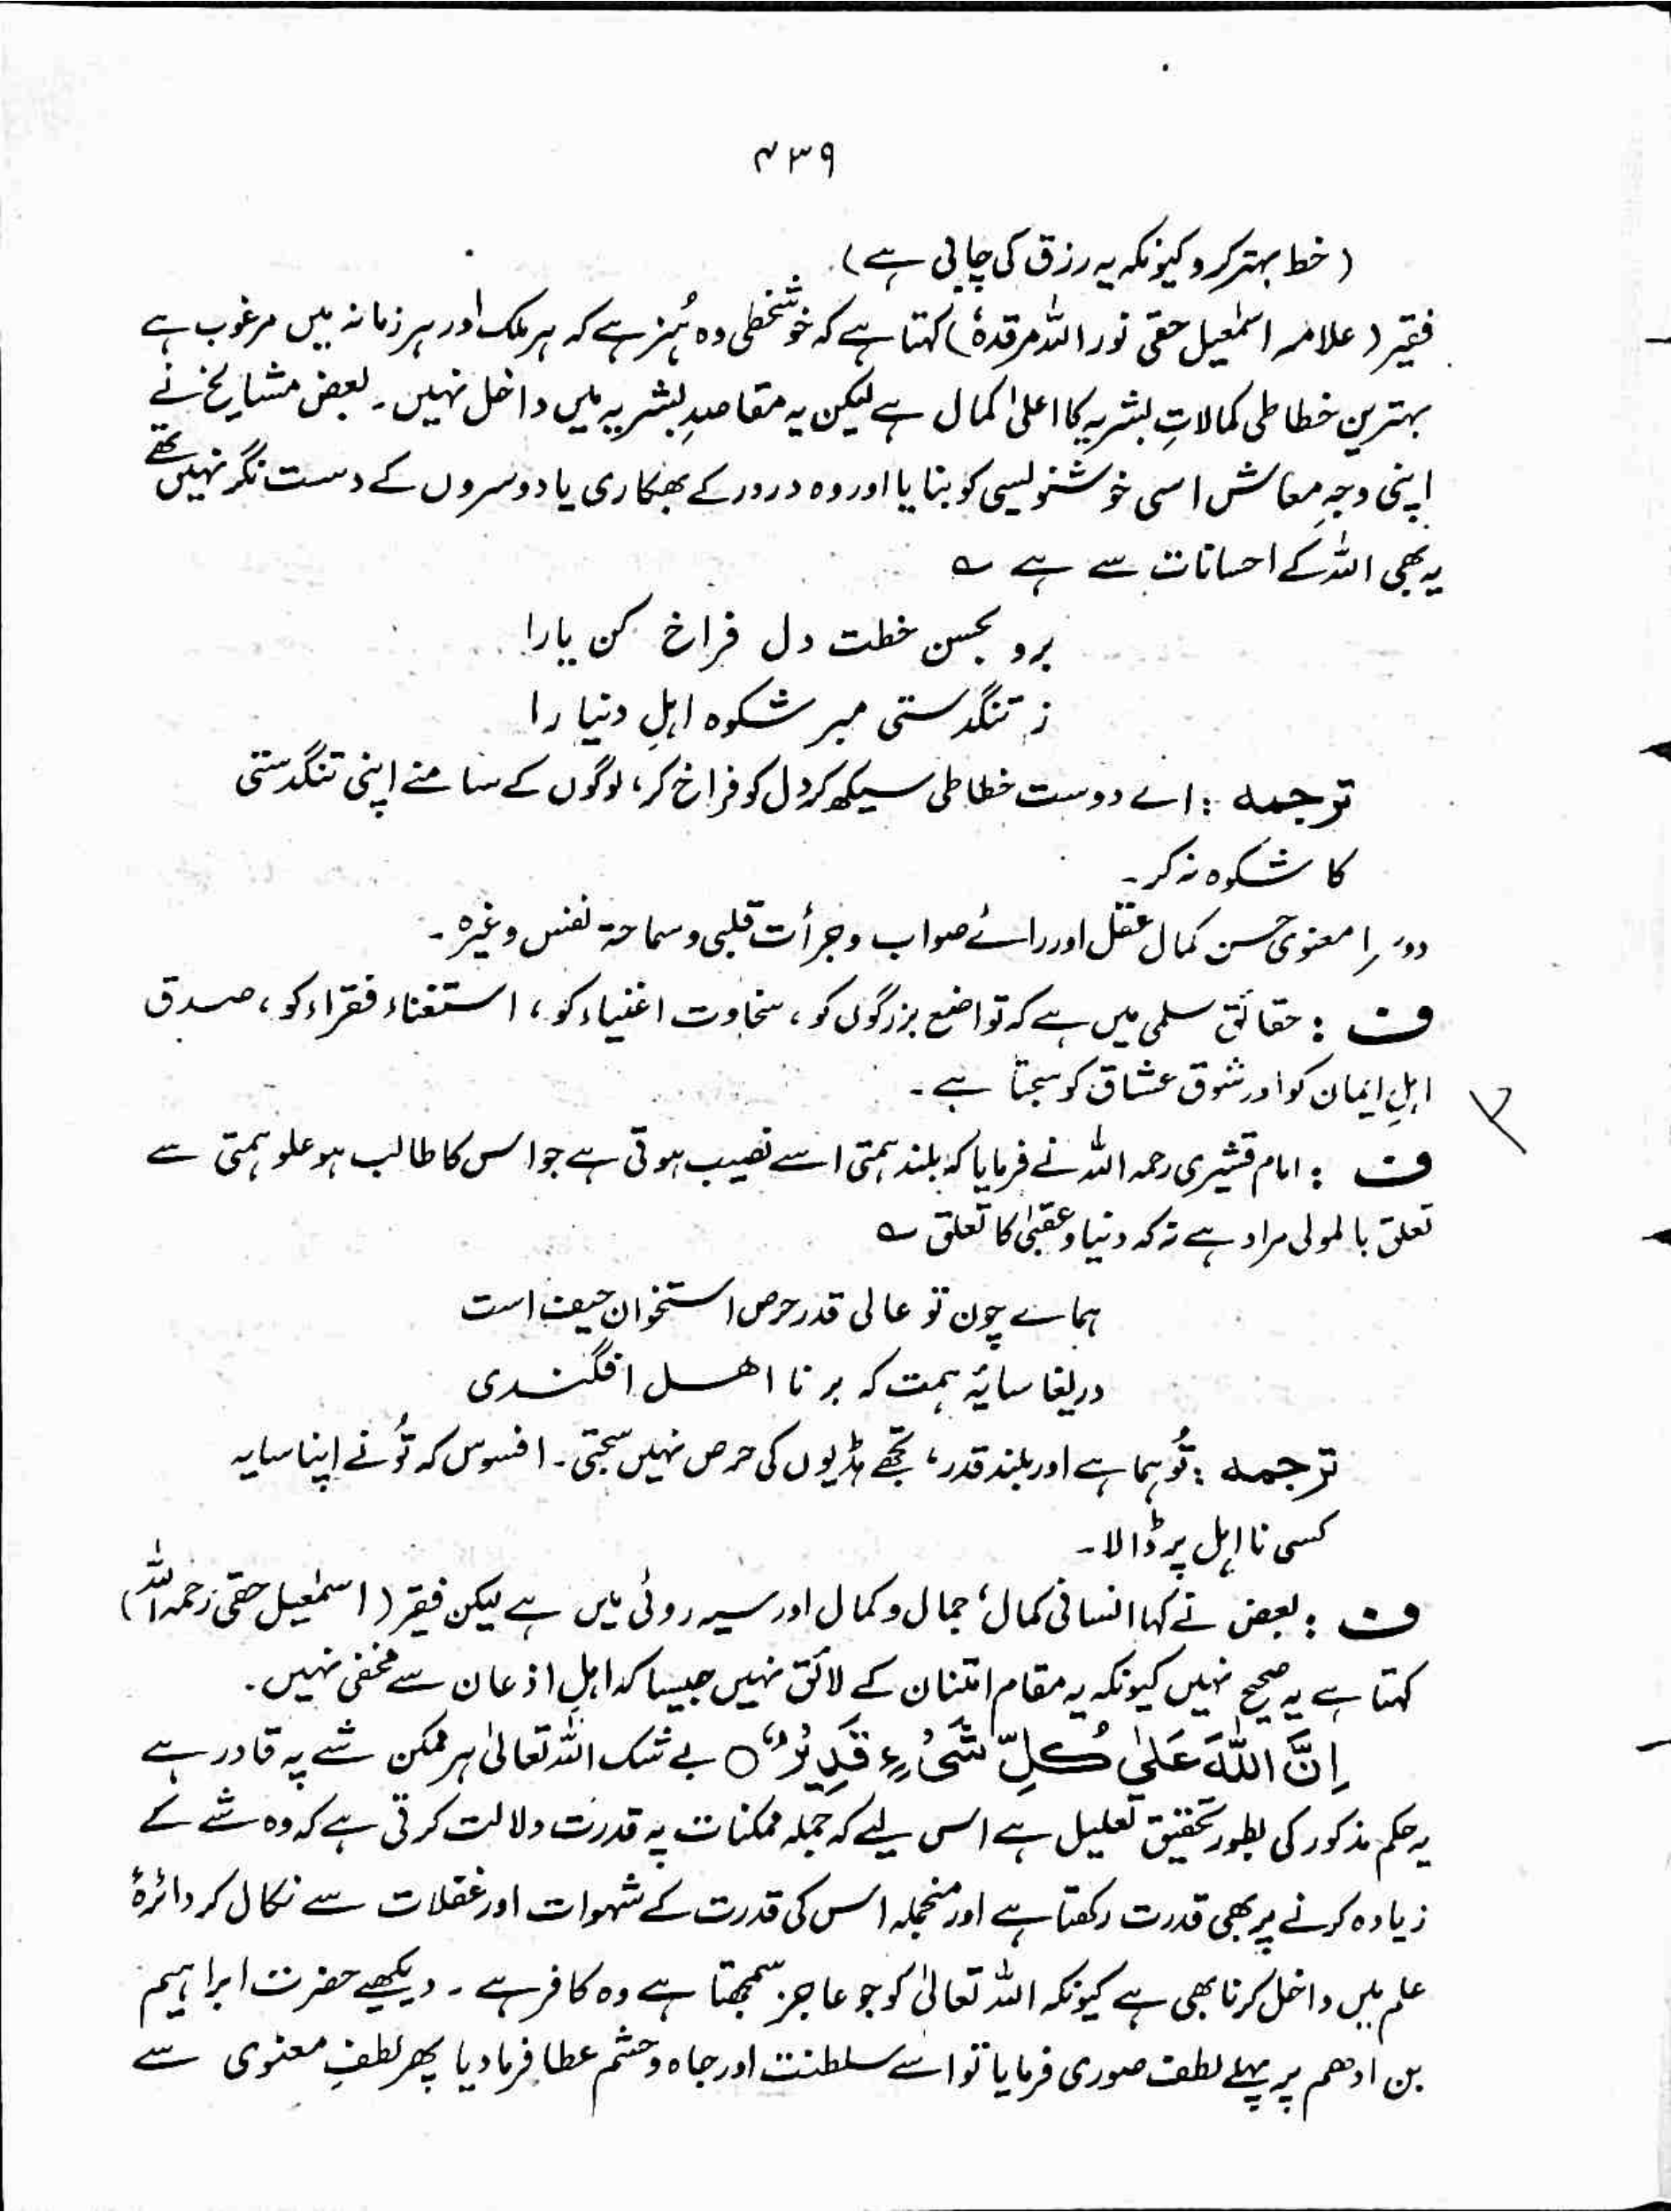 ۴۳۹
(خط بہتر کرو کیونکہ یہ رزق کی چابی ہے)۔
فقیر (علامہ اسمٰعیل حقی نور اللہ مرقدہٗ) کہتا ہے کہ خوشخطی وہ ہُنر ہے کہ ہر ملک اور ہر زمانہ میں مرغوب ہے
بہترین خطاطی کمالاتِ بشریہ کا اعلیٰ کمال ہے لیکن یہ مقاصدِ بشریہ میں داخل نہیں۔ بعض مشایخ نے
اپنی وجہِ معاش اسی خوشنویسی کو بنایا اور وہ در در کے بھکاری یا دوسروں کے دست نگر نہیں تھے
یہ بھی اللہ کے احسانات سے ہے ؎
برو بحسن خطت دل فراخ کن یارا
ز تنگدستی مبر شکوہ اہلِ دنیا را
ترجمہ : اے دوست خطاطی سیکھ کر دل کو فراخ کر، لوگوں کے سامنے اپنی تنگدستی
کا شکوہ نہ کر۔
دوسرا معنوی حسن کمال عقل اور رائے صواب و جرأت قلبی و سماحۃ نفس وغیرہ۔
ف : حقائق سلمی میں ہے کہ تواضع بزرگوں کو، سخاوت اغنیاء کو، استغناء فقراء کو، صدق
اہلِ ایمان کو اور شوق عشاق کو سجتا ہے۔
ف : امام قشیری رحمہ اللہ نے فرمایا کہ بلند ہمتی اسے نصیب ہوتی ہے جو اس کا طالب ہو علو ہمتی سے
تعلق بالمولی مراد ہے نہ کہ دنیا و عقبیٰ کا تعلق ؎
ہمائے چون تو عالی قدر حرص استخوان حیف است
دریغا سایۂ ہمت کہ بر نا اھل افگندی
ترجمہ : تُو ہما ہے اور بلند قدر، تجھے ہڈیوں کی حرص نہیں سجتی۔ افسوس کہ تُو نے اپنا سایہ
کسی نا اہل پر ڈالا۔
ف : بعض نے کہا انسانی کمال، جمال و کمال اور سیہ روئی میں ہے لیکن فقیر (اسمٰعیل حقی رحمہ اللہ)
کہتا ہے یہ صحیح نہیں کیونکہ یہ مقام امتنان کے لائق نہیں جیسا کہ اہلِ اذعان سے مخفی نہیں۔
اِنَّ اللّٰہَ عَلٰی کُلِّ شَیْءٍ قَدِیْرٌ ○ بے شک اللہ تعالیٰ ہر ممکن شے پہ قادر ہے
یہ حکم مذکور کی بطور تحقیق تعلیل ہے اس لیے کہ جملہ ممکنات پہ قدرت دلالت کرتی ہے کہ وہ شے کے
زیادہ کرنے پر بھی قدرت رکھتا ہے اور منجملہ اس کی قدرت کے شہوات اور غفلات سے نکال کر دائرۂ
علم میں داخل کرنا بھی ہے کیونکہ اللہ تعالیٰ کو جو عاجز سمجھتا ہے وہ کافر ہے۔ دیکھیے حضرت ابراہیم
بن ادھم پر پہلے لطف صوری فرمایا تو اسے سلطنت اور جاہ و حشم عطا فرما دیا پھر لطفِ معنوی سے